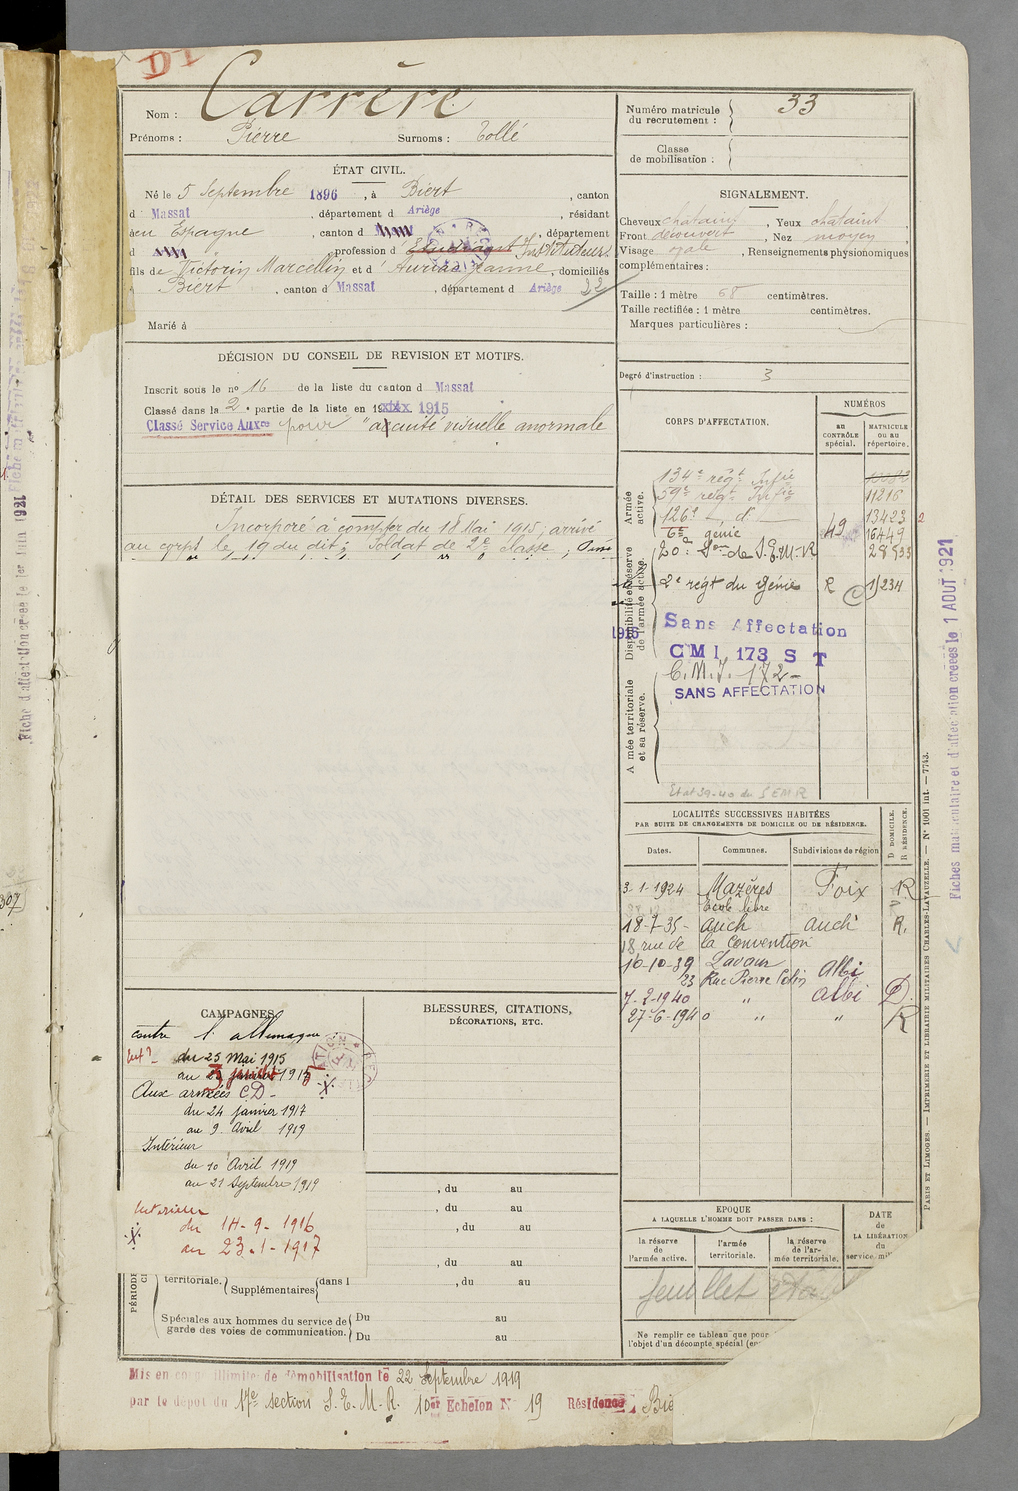 D1
Nom : Carrère
Prénoms : Pierre Surnoms : Tollé
ÉTAT CIVIL.
Né le 5 Septembre 1896, à Biert, canton
d Massat, département d Ariège, résidant
à en Espagne, canton d , département
d , profession d Etudiant Instituteur.
fils de Victorin Marcellin et d' Auriac Jeanne, domiciliés
à Biert, canton d Massat, département d Ariège 22
Marié à
DÉCISION DU CONSEIL DE REVISION ET MOTIFS.
Inscrit sous le no 16 de la liste du canton d Massat
Classé dans la 2e partie de la liste en 19 1915
Classé Service Auxre pour "acuité visuelle anormale
DÉTAIL DES SERVICES ET MUTATIONS DIVERSES.
Incorporé à compter du 18 Mai 1915, arrivé
au corps le 19 du dit; Soldat de 2e classe;
CAMPAGNES
contre l'allemagne
Intr
du 25 Mai 1915
au 1915
Aux armées C.D-
du 24 janvier 1917
au 9 Avril 1919
Intérieur
du 10 Avril 1919
au 21 Septembre 1919
Interieur
du 14-9-1916
au 23-1-1917
BLESSURES, CITATIONS,
DÉCORATIONS, ETC.
, du au
, du au
, du au
, du au
territoriale. Supplémentaires dans l , du au
Spéciales aux hommes du service de
garde des voies de communication.
Du au
Du au
PÉRIODE
Mis en congé illimité de démobilisation le 22 Septembre 1919
par le dépôt du 17e section S.E.M.R. 10er Echelon No 19 Résidence Bie
Numéro matricule
du recrutement : 33
Classe
de mobilisation :
SIGNALEMENT.
Cheveux chatain, Yeux chatains
Front découvert, Nez moyen
Visage ovale, Renseignements physionomiques
complémentaires :
Taille : 1 mètre 68 centimètres.
Taille rectifiée : 1 mètre centimètres.
Marques particulières :
Degré d'instruction : 3
CORPS D'AFFECTATION.
NUMÉROS
au
CONTRÔLE
spécial.
MATRICULE
ou au
répertoire.
Armée
active.
134e régt Infie
59e régt Infie 11216
126e d° 13423
6e génie 49 16449
20e Son de S.E.M.R 28533
Disponibilité et réserve
de l'armée active.
2e régt du génie R C 1/234
1916
Sans Affectation
CMI 173 S T
C.M.I. 172-
SANS AFFECTATION
A mée territoriale
et sa réserve.
Etat 39-40 du SEMR
LOCALITÉS SUCCESSIVES HABITÉES
PAR SUITE DE CHANGEMENTS DE DOMICILE OU DE RÉSIDENCE.
D DOMICILE.
R RÉSIDENCE.
Dates. Communes. Subdivisions de région
3-1-1924 Mazères Foix R
Ecole libre
18-7-35- Auch auch R.
18 rue de la Convention
16-10-39 Lavaur Albi
23 Rue Pierre Colin
7-2-1940 " albi D.
27-6-1940 " " R
EPOQUE
A LAQUELLE L'HOMME DOIT PASSER DANS :
la réserve
de
l'armée active.
l'armée
territoriale.
la réserve
de l'ar-
mée territoriale.
DATE
de
LA LIBÉRATION
du
service mili
feuillet
Ne remplir ce tableau que pour
l'objet d'un décompte spécial (en
PARIS ET LIMOGES. — IMPRIMERIE ET LIBRAIRIE MILITAIRES CHARLES-LAVAUZELLE. — No 1001 int. — 7743.
Fiches matriculaire et d'affectation créées le 1 AOUT 1921
Fiche d'affectation créée le 1er Juin 1921
307